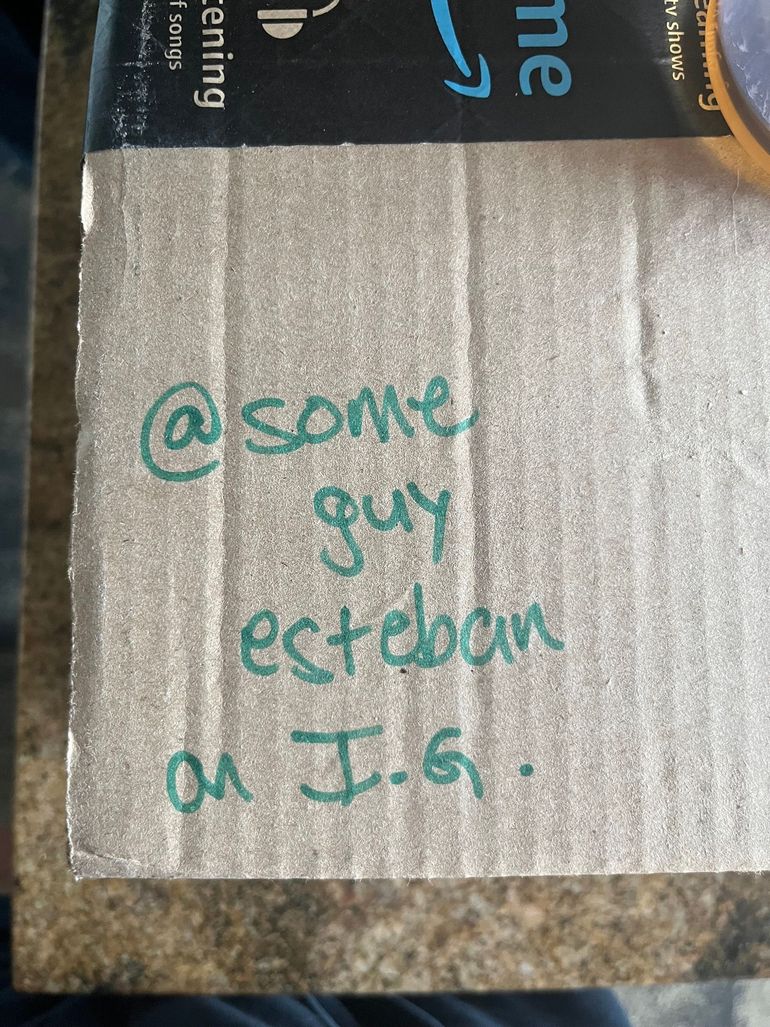 tening
f songs
me
tv shows
@some
guy
esteban
on I.G.